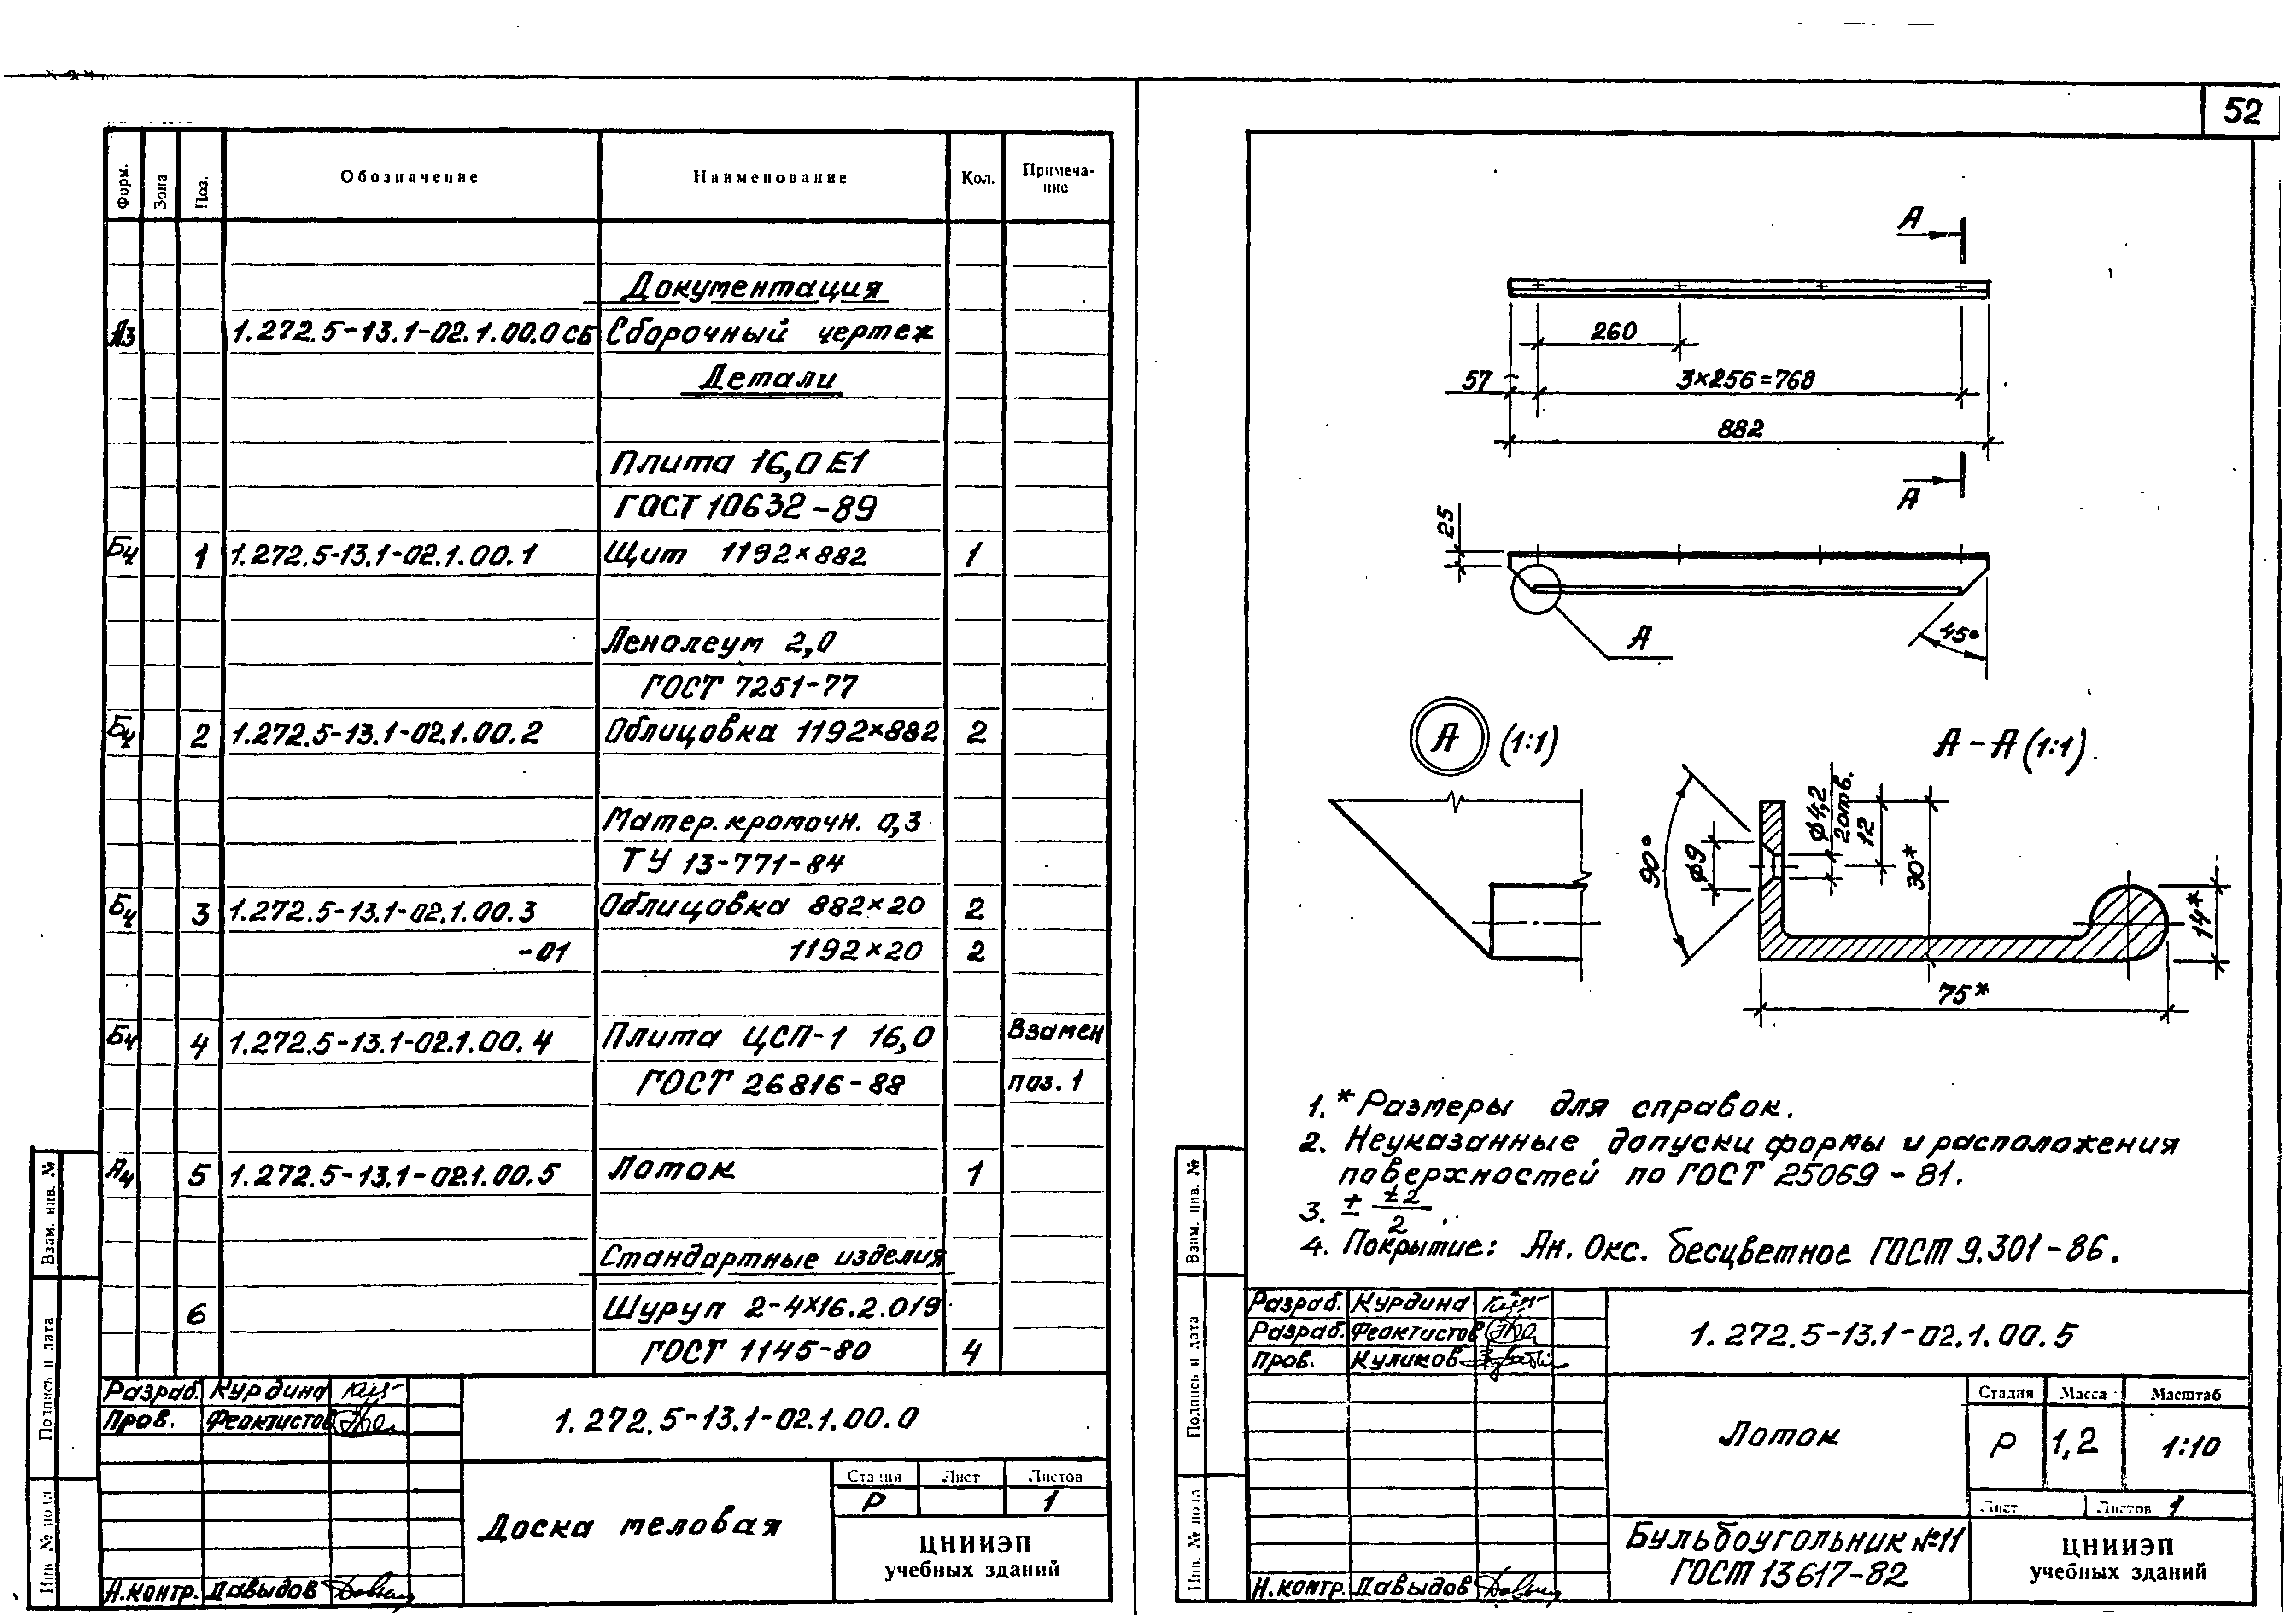 52
Форм.
Зона
Поз.
Обозначение
Наименование
Кол.
Примеча-
ние
Документация
А3 1.272.5-13.1-02.1.00.0 СБ Сборочный чертеж
Детали
Плита 16,0 Е1
ГОСТ 10632-89
Бч 1 1.272.5-13.1-02.1.00.1 Щит 1192×882 1
Ленолеум 2,0
ГОСТ 7251-77
Бч 2 1.272.5-13.1-02.1.00.2 Облицовка 1192×882 2
Матер. кромочн. 0,3
ТУ 13-771-84
Бч 3 1.272.5-13.1-02.1.00.3 Облицовка 882×20 2
-01 1192×20 2
Бч 4 1.272.5-13.1-02.1.00.4 Плита ЦСП-1 16,0 Взамен
ГОСТ 26816-88 поз. 1
А4 5 1.272.5-13.1-02.1.00.5 Лоток 1
Стандартные изделия
6 Шуруп 2-4×16.2.019
ГОСТ 1145-80 4
Взам. инв. №
Подпись и дата
Инв. № подл
Разраб. Курдина
Пров. Феоктистов
Н.контр. Давыдов
1.272.5-13.1-02.1.00.0
Доска меловая
Стадия Лист Листов
Р 1
ЦНИИЭП
учебных зданий
А
260
57
3×256=768
882
А
25
А
45°
А (1:1)
А-А (1:1)
90°
ϕ9
ϕ4,2
2отв.
12
30*
14*
75*
1. * Размеры для справок.
2. Неуказанные допуски формы и расположения
поверхностей по ГОСТ 25069-81.
3. ± ±2
2 .
4. Покрытие: Ан. Окс. бесцветное ГОСТ 9.301-86.
Взам. инв. №
Подпись и дата
Инв. № подл
Разраб. Курдина
Разраб. Феоктистов
Пров. Куликов
Н.контр. Давыдов
1.272.5-13.1-02.1.00.5
Лоток
Стадия Масса Масштаб
Р 1,2 1:10
Лист Листов 1
Бульбоугольник №11
ГОСТ 13617-82
ЦНИИЭП
учебных зданий